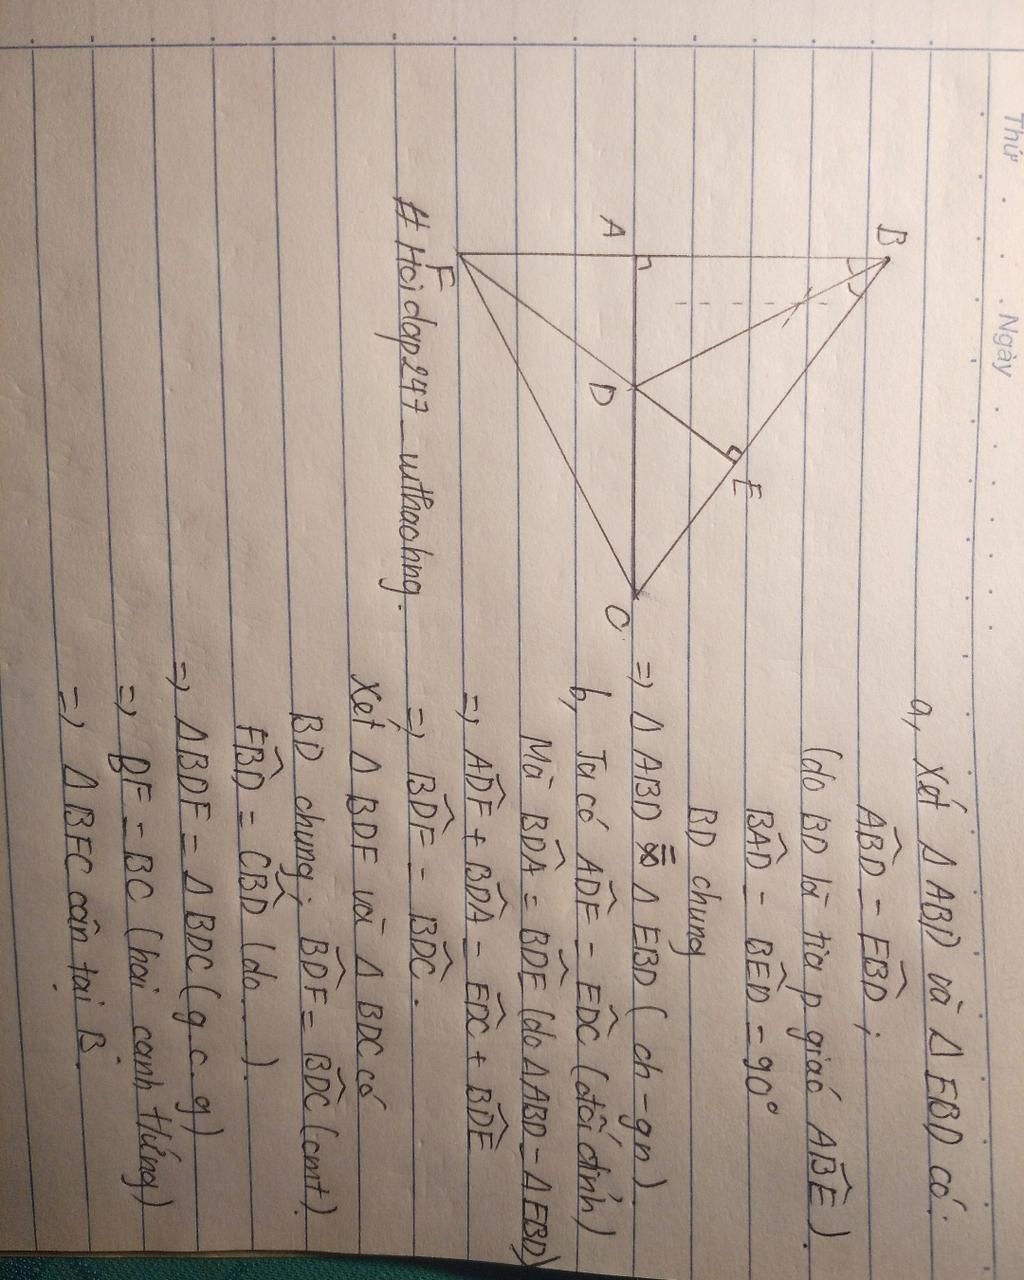 Thứ
Ngày
B
A
D
E
C
F
#Hoidap247_wthaohng.
a, Xét Δ ABD và Δ EBD có:
ABD̂ = EBD̂ ;
(do BD là tia p giác ABÊ).
BAD̂ = BED̂ = 90°
BD chung
=> Δ ABD = Δ EBD (ch-gn).
b, Ta có ADF̂ = EDĈ (đối đỉnh)
Mà BDÂ = BDÊ (do ΔABD = ΔEBD)
=> ADF̂ + BDÂ = EDĈ + BDÊ
=> BDF̂ = BDĈ.
Xét Δ BDF và Δ BDC có
BD chung; BDF̂ = BDĈ (cmt).
FBD̂ = CBD̂ (do....).
=> Δ BDF = Δ BDC (g.c.g)
=> BF = BC (hai cạnh tướng)
=> Δ BFC cân tại B.